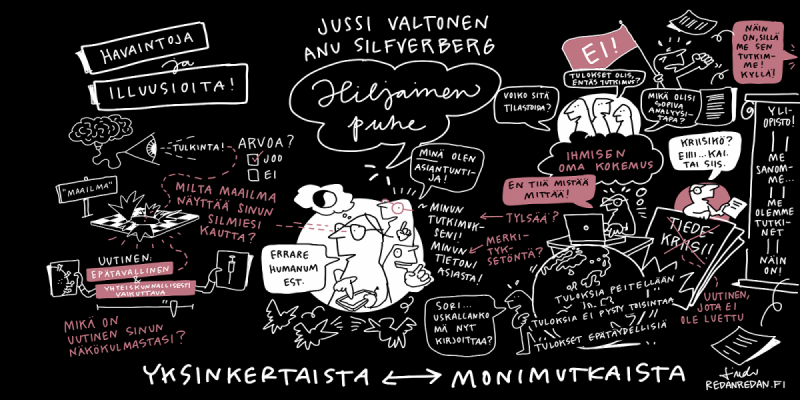 HAVAINTOJA
ja
ILLUUSIOITA!
JUSSI VALTONEN
ANU SILFVERBERG
Hiljainen
puhe
TULKINTA!
ARVOA?
JOO
EI
"MAAILMA"
MILTÄ MAAILMA
NÄYTTÄÄ SINUN
SILMIESI
KAUTTA?
UUTINEN:
EPÄTAVALLINEN
&
YHTEISKUNNALLISESTI
VAIKUTTAVA
MIKÄ ON
UUTINEN SINUN
NÄKÖKULMASTASI?
ERRARE
HUMANUM
EST.
MINÄ OLEN
ASIANTUNTI-
JA!
~ MINUN
TUTKIMUK-
SENI!
MINUN
TIETONI
ASIASTA!
TYLSÄÄ?
MERKI-
TYK-
SETÖNTÄ?
SORI...
USKALLANKO
MÄ NYT
KIRJOITTAA?
EI!
TULOKSET OLIS,
ENTÄS TUTKIMUS?
VOIKO SITÄ
TILASTOIDA?
MIKÄ OLISI
SOPIVA
ANALYYSI-
TAPA?
IHMISEN
OMA KOKEMUS
EN TIIÄ MISTÄÄ
MITTÄÄ!
NÄIN
ON, SILLÄ
ME SEN
TUTKIM-
ME!
KYLLÄ!
KRIISIKÖ?
EIII...KAI.
TAI SIIS.
YLI-
OPISTO!
ME
SANOM-
ME...
ME
OLEMME
TUTKI-
NET
NÄIN
ON!
TIEDE-
KRIISI!
UUTINEN,
JOTA EI
OLE LUETTU
TULOKSIA PEITELLÄÄN
TULOKSIA EI PYSTY TOISINTAA
TULOKSET EPÄTÄYDELLISIÄ
YKSINKERTAISTA ↔ MONIMUTKAISTA
REDANREDAN.FI